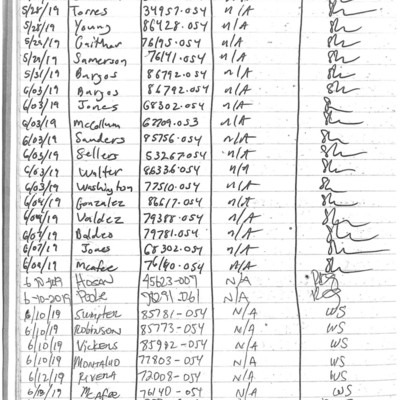 5/28/19 Torres 34957-054 n/A
5/28/19 Young 86428-054 n/A
5/29/19 Gaither 76195-054 n/A
5/29/19 Samerson 76141-054 n/A
5/31/19 Bargos 86792-054 n/A
6/03/19 Bargos 86792-054 n/A
6/03/19 Jones 68302-054 n/A
6/03/19 McCollum 67709-053 n/A
6/03/19 Sanders 85756-054 n/A
6/03/19 Sellers 53267-054 n/A
6/03/19 Walter 86336-054 n/A
6/03/19 Washington 77510-054 n/A
6/04/19 Gonzalez 86617-054 n/A
6/04/19 Valdez 79388-054 n/A
6/07/19 Baldeo 79781-054 n/A
6/07/19 Jones 68302-054 n/A
6/09/19 Mcafee 76140-054 n/A
6-10-2019 Hogan 45623-007 N/A
6-10-2019 Poole N/A
6/10/19 Sumpter 85781-054 N/A WS
6/10/19 Robinson 85773-054 N/A WS
6/10/19 Vickens 85992-054 N/A WS
6/10/19 77803-054 N/A WS
6/12/19 Rivera 72008-054 N/A WS
McAfee 76140-054 N/A WS